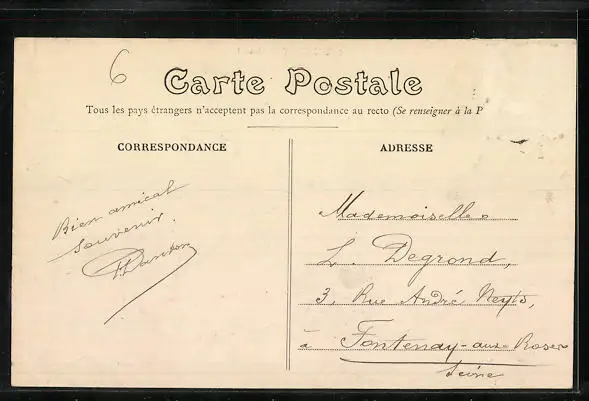 6
Carte Postale
Tous les pays étrangers n'acceptent pas la correspondance au recto (Se renseigner à la P
CORRESPONDANCE
ADRESSE
Bien amical
souvenir.
Mademoiselle
L. Degrond,
3, Rue André Neyts,
à Fontenay-aux Roses
Seine